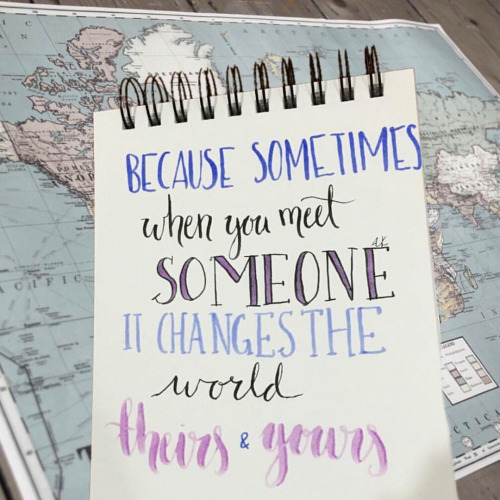 BECAUSE SOMETIMES
when you meet
A.K
SOMEONE
IT CHANGES THE
world
theirs & yours
PACIFIC